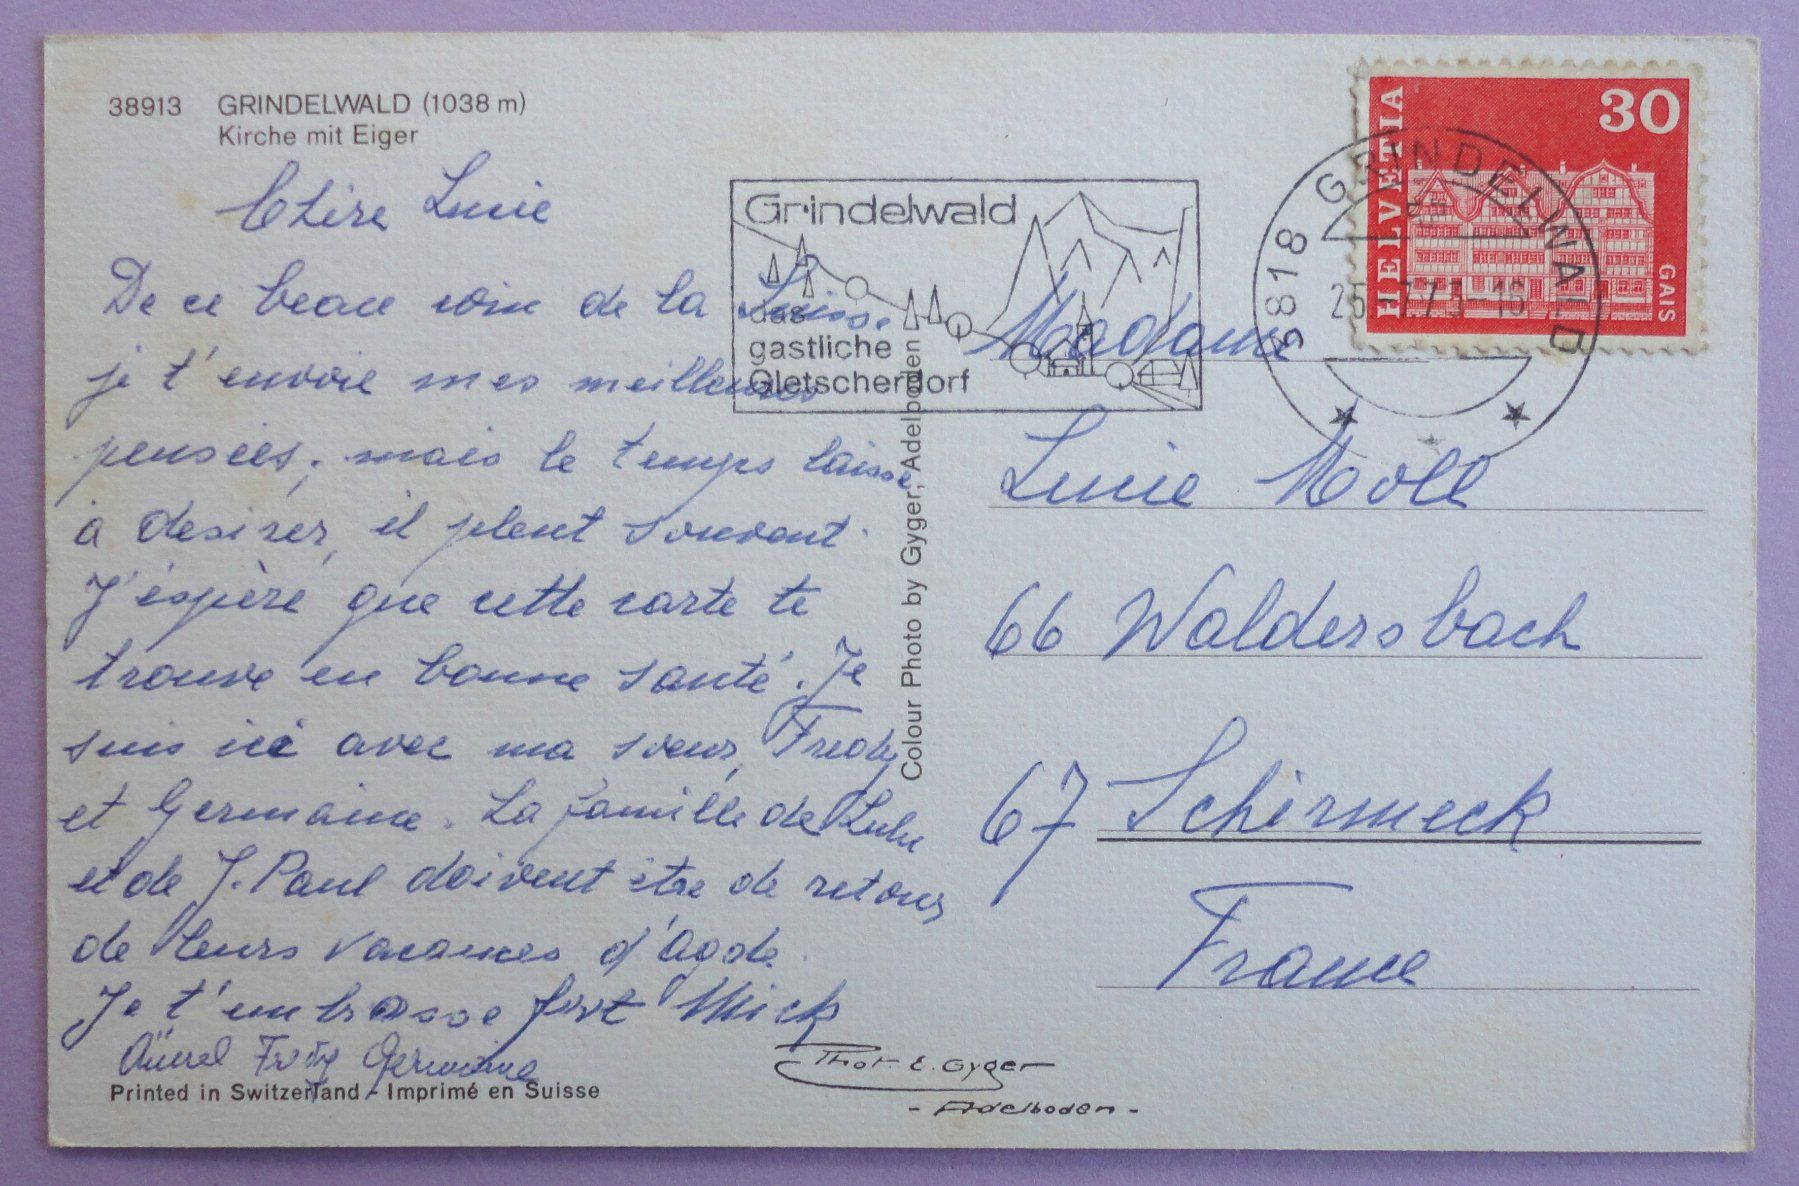 38913 GRINDELWALD (1038 m)
Kirche mit Eiger
Chère Lucie
De ce beau coin de la Suisse
je t'envoie mes meilleures
pensées, mais le temps laisse
à desirer, il pleut souvent.
J'éspère que cette carte te
trouve en bonne santé. Je
suis ici avec ma soeur, Fredy
et Germaine. La famille de Lulu
et de J. Paul doivent être de retour
de leurs vacances d'Agde.
Je t'embrasse fort Mick
Germaine
Printed in Switzerland - Imprimé en Suisse
Colour Photo by Gyger, Adelboden
Phot. E. Gyger
- Adelboden -
Grindelwald
das
gastliche
Gletscherdorf
3818 GRINDELWALD
HELVETIA
30
GAIS
Madame
Lucie Moll
66 Waldersbach
67 Schirmeck
France